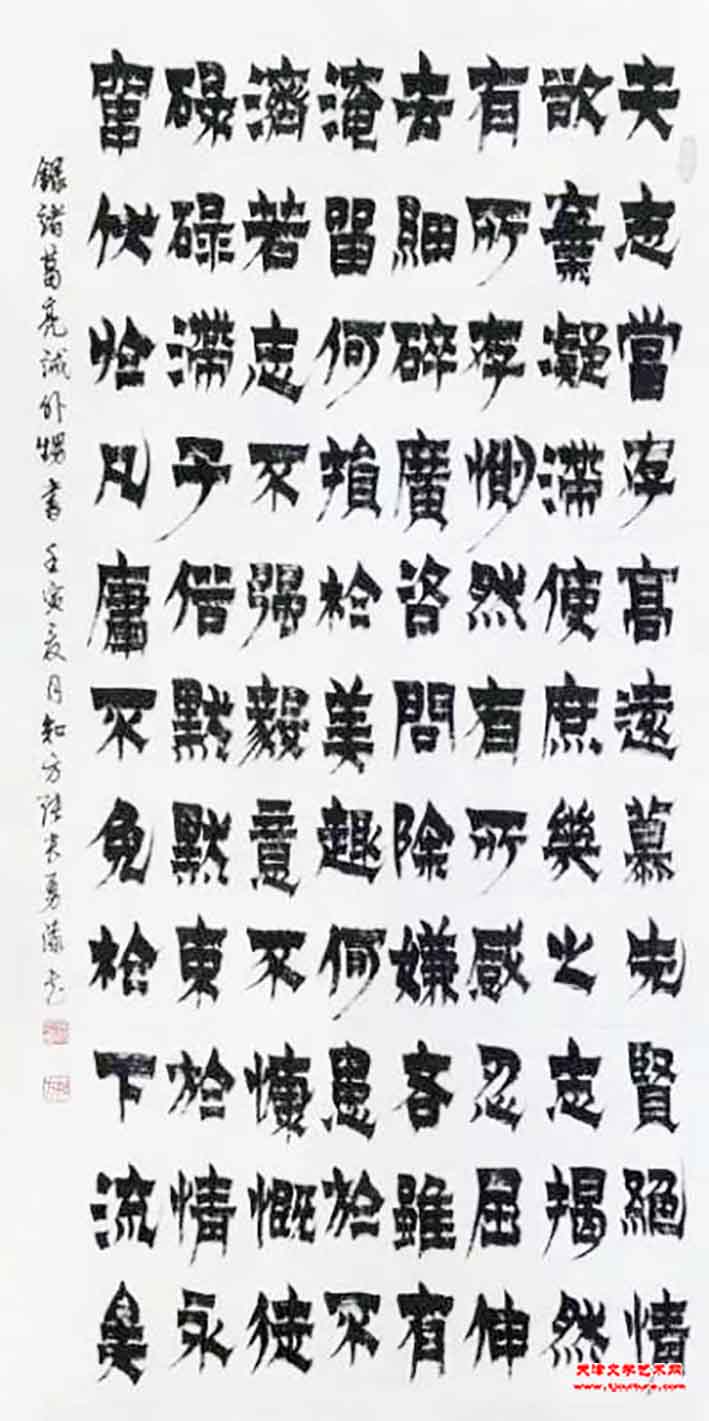 夫志當存高遠慕先賢絕情
欲棄凝滯使庶幾之志揭然
有所存惻然有所感忍屈伸
去細碎廣咨問除嫌吝雖有
淹留何損於美趣何患於不
濟若志不強毅意不慷慨徒
碌碌滯于俗默默束於情永
竄伏於凡庸不免於下流矣
錄諸葛亮誡外甥書 壬寅夏月知方張勇漆書
天津文学艺术网
www.tjculture.com